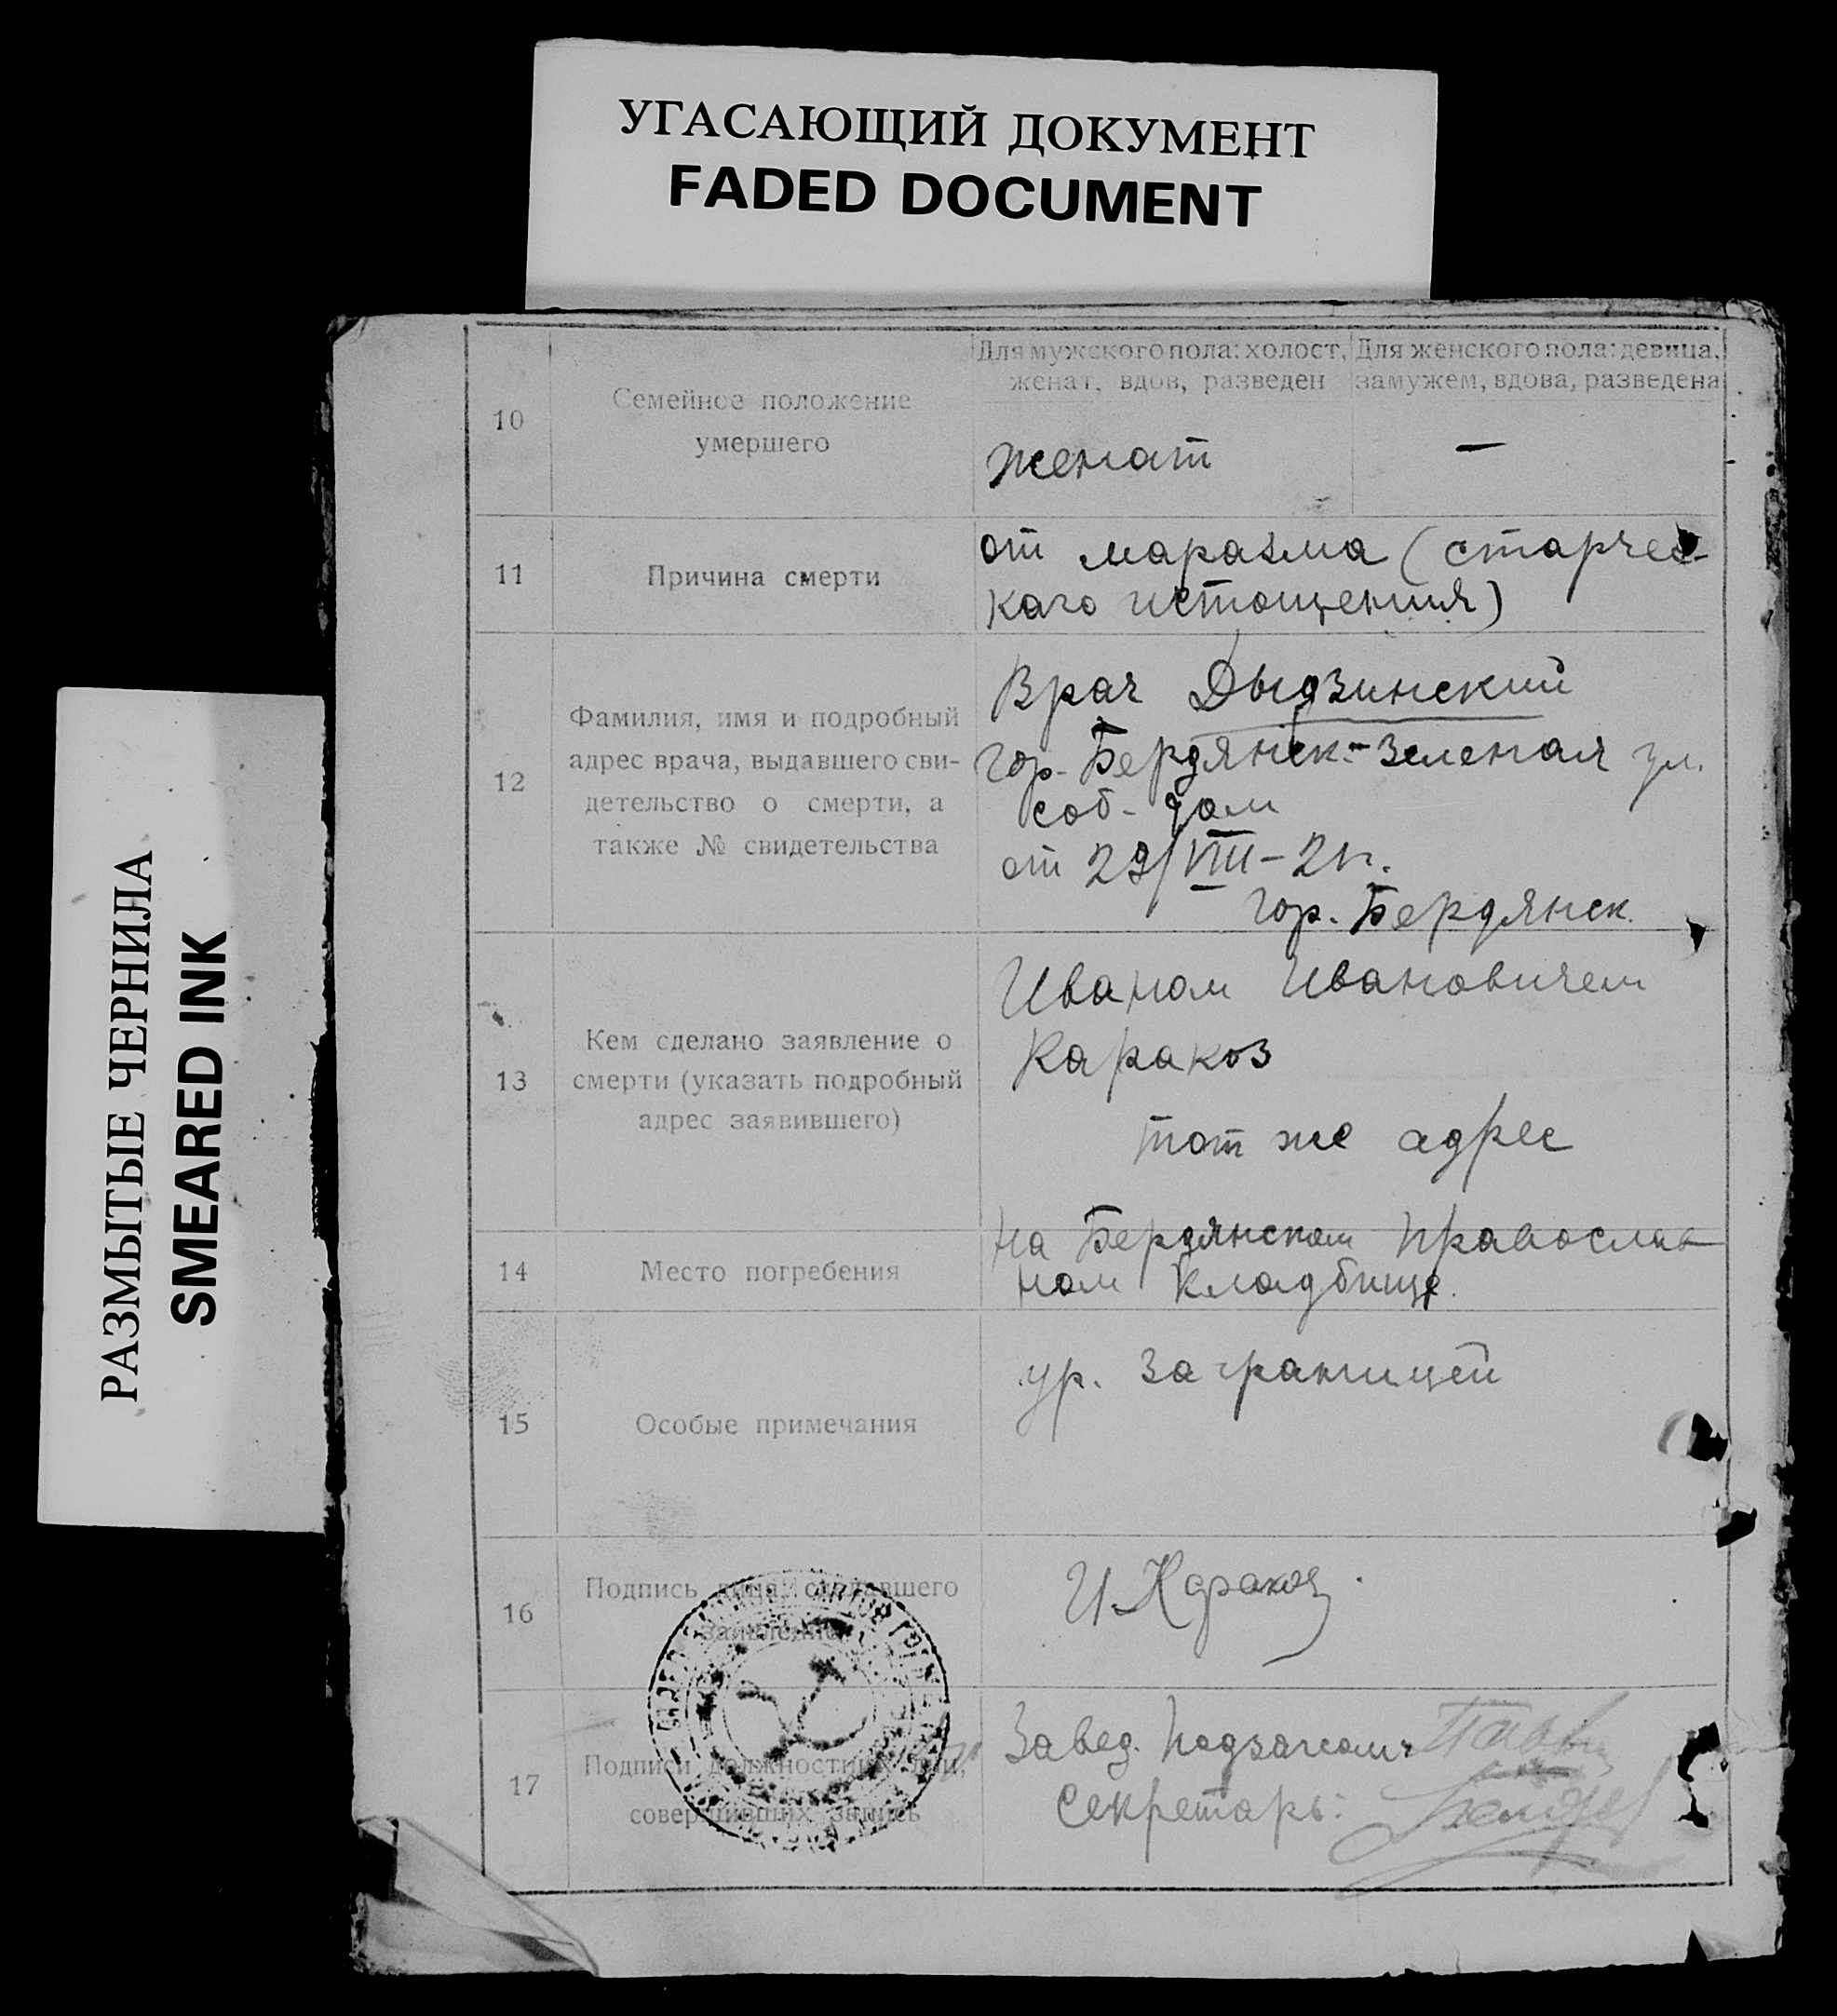 УГАСАЮЩИЙ ДОКУМЕНТ
FADED DOCUMENT
РАЗМЫТЫЕ ЧЕРНИЛА
SMEARED INK
10
Семейное положение
умершего
Для мужского пола: холост,
женат, вдов, разведен
Для женского пола: девица,
замужем, вдова, разведена
женат
—
11
Причина смерти
от маразма (старчес-
каго истощения)
12
Фамилия, имя и подробный
адрес врача, выдавшего сви-
детельство о смерти, а
также № свидетельства
Врач Дыдзинский
гор. Бердянск-Зеленая ул.
соб-дом
от 29/VIII-2
гор. Бердянск.
13
Кем сделано заявление о
смерти (указать подробный
адрес заявившего)
Иваном Ивановичем
Каракоз
тот же адрес
14
Место погребения
на Бердянском православ
ном кладбище.
15
Особые примечания
ур. заграницей
16
Подпись лица, сделавшего
заявление
И Каракоз
17
Подписи должностных лиц,
совершивших запись
Завед. Подзагсом
Секретарь: